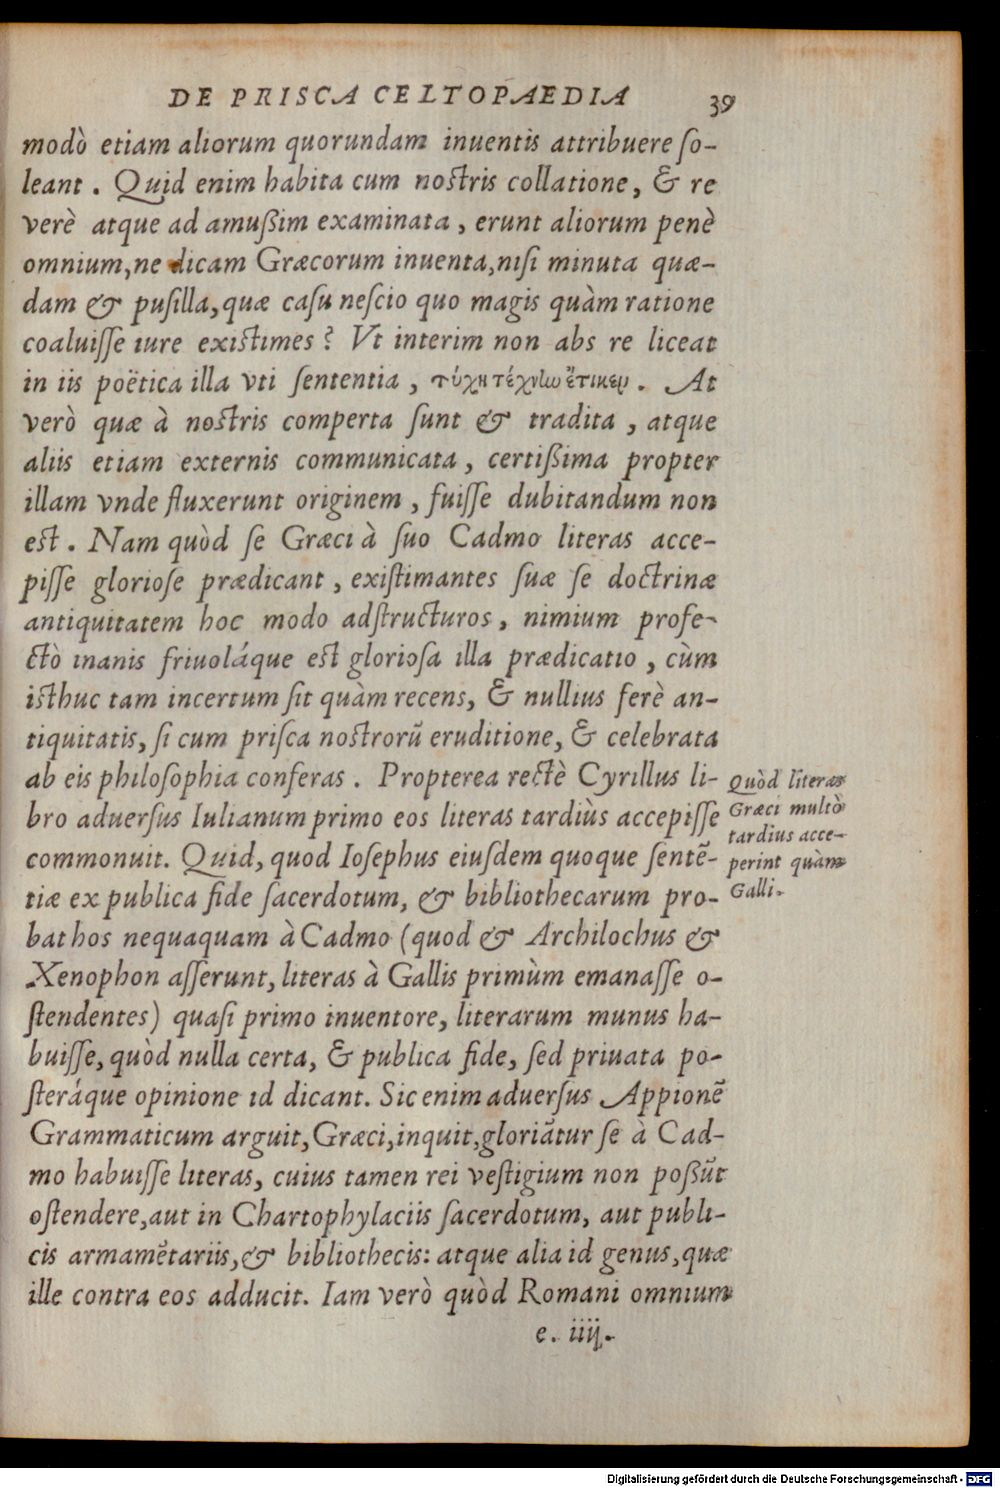 DE PRISCA CELTOPAEDIA 39
modò etiam aliorum quorundam inuentis attribuere ſo-
leant. Quid enim habita cum noſtris collatione, & re
verè atque ad amußim examinata, erunt aliorum penè
omnium, ne dicam Græcorum inuenta, niſi minuta quæ-
dam & puſilla, quæ caſu neſcio quo magis quàm ratione
coaluiſſe iure exiſtimes? Vt interim non abs re liceat
in iis poëtica illa vti ſententia, τύχη τέχνην ἔτικεν. At
verò quæ à noſtris comperta ſunt & tradita, atque
aliis etiam externis communicata, certißima propter
illam vnde fluxerunt originem, fuiſſe dubitandum non
eſt. Nam quòd ſe Græci à ſuo Cadmo literas acce-
piſſe glorioſe prædicant, exiſtimantes ſuæ ſe doctrinæ
antiquitatem hoc modo adſtructuros, nimium profe-
ctò inanis friuoláque eſt glorioſa illa prædicatio, cùm
iſthuc tam incertum ſit quàm recens, & nullius ferè an-
tiquitatis, ſi cum priſca noſtrorũ eruditione, & celebrata
ab eis philoſophia conferas. Propterea rectè Cyrillus li-
bro aduerſus Iulianum primo eos literas tardiùs accepiſſe
commonuit. Quid, quod Ioſephus eiuſdem quoque ſentẽ-
tiæ ex publica fide ſacerdotum, & bibliothecarum pro-
bat hos nequaquam à Cadmo (quod & Archilochus &
Xenophon aſſerunt, literas à Gallis primùm emanaſſe o-
ſtendentes) quaſi primo inuentore, literarum munus ha-
buiſſe, quòd nulla certa, & publica fide, ſed priuata po-
ſteráque opinione id dicant. Sic enim aduerſus Appionẽ
Grammaticum arguit, Græci, inquit, gloriãtur ſe à Cad-
mo habuiſſe literas, cuius tamen rei veſtigium non poßũt
oſtendere, aut in Chartophylaciis ſacerdotum, aut publi-
cis armamẽtariis, & bibliothecis: atque alia id genus, quæ
ille contra eos adducit. Iam verò quòd Romani omnium
e. iiij.
Quòd literas
Græci multò
tardius acce-
perint quàm
Galli.
Digitalisierung gefördert durch die Deutsche Forschungsgemeinschaft - DFG